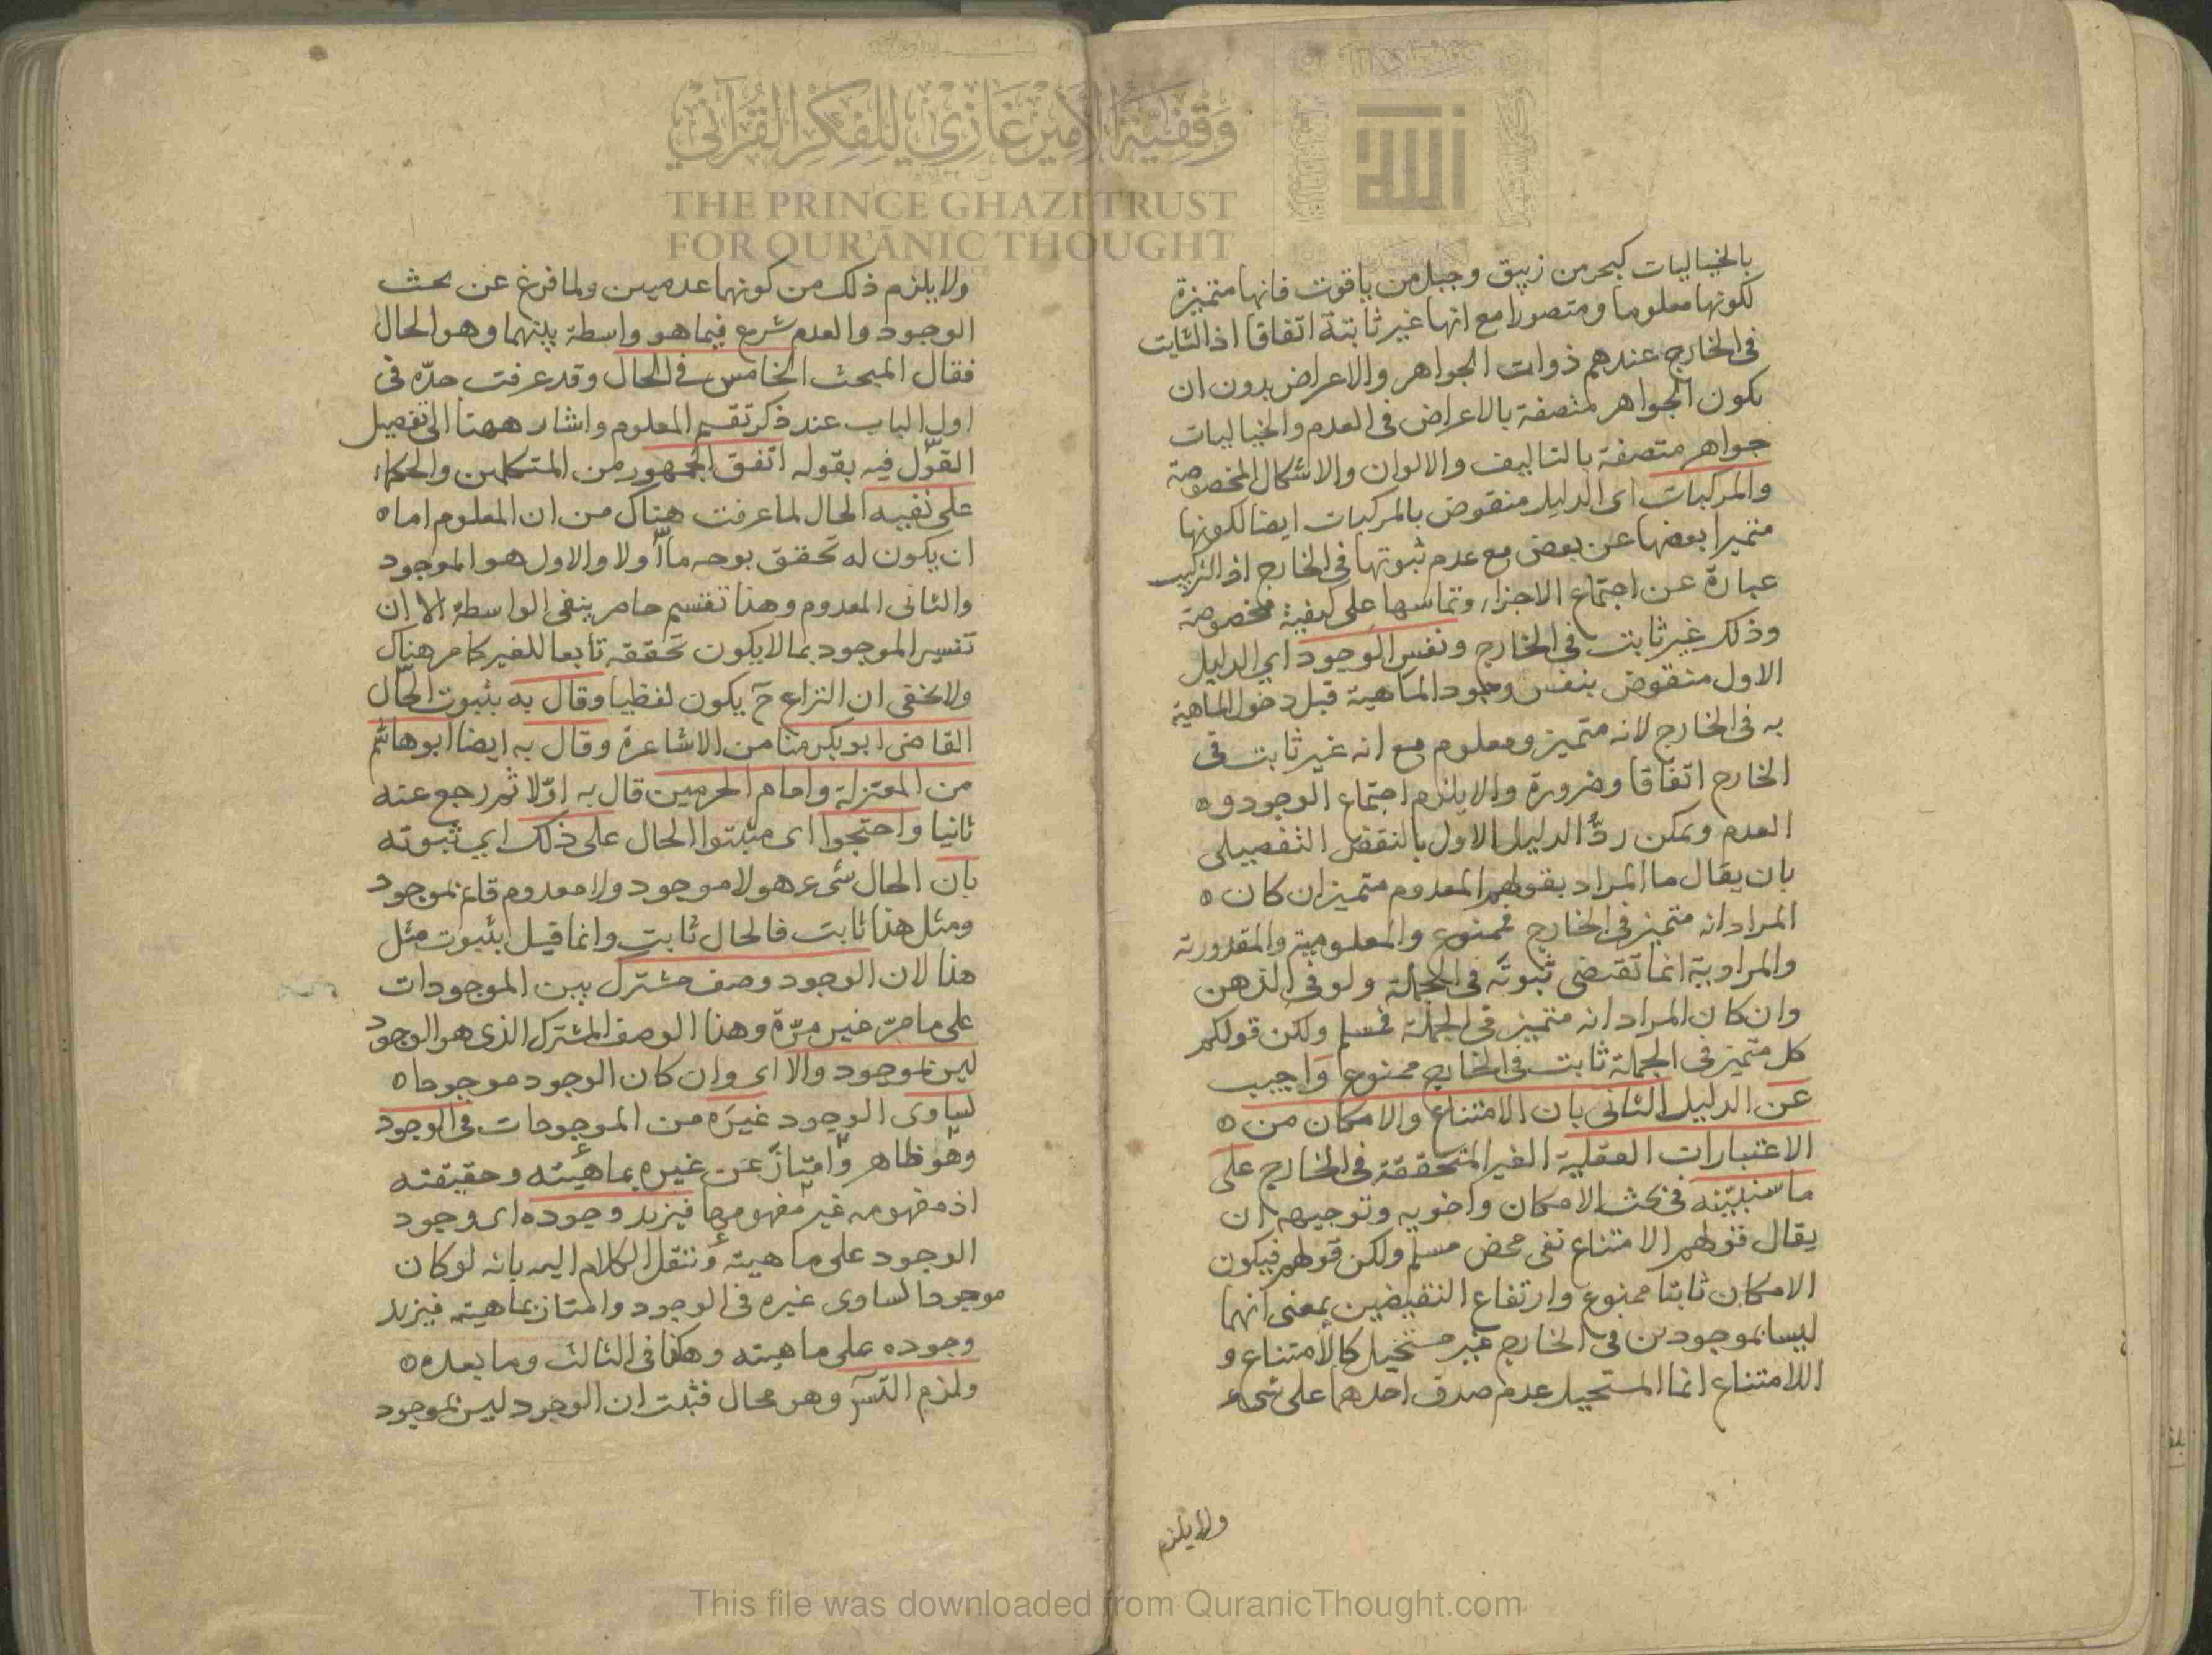 وقفية الأمير غازي للفكر القرآني
THE PRINCE GHAZI TRUST
FOR QUR'ĀNIC THOUGHT
الله
بالخياليات كبحر من زيبق وجبل من ياقوت فانها متميزة
لكونها معلوما ومتصورا مع انها غير ثابتة اتفاقا اذ الثابت
فى الخارج عندهم ذوات الجواهر والاعراض بدون ان
يكون الجواهر متصفة بالاعراض فى العدم والخياليات
جواهر متصفة بالتاليف والالوان والاشكال المخصوصة
والمركبات اى الدليل منقوض بالمركبات ايضا لكونها
متميرا بعضها عن بعض مع عدم ثبوتها فى الخارج اذ التركيب
عبارة عن اجتماع الاجزاء وتماسها على كيفية مخصوصة
وذلك غير ثابت فى الخارج ونفس الوجود اي الدليل
الاول منقوض بنفس وجود الماهية قبل دخول الماهية
به فى الخارج لانه متميز ومعلوم مع انه غير ثابت فى
الخارج اتفاقا وضرورة والا يلزم اجتماع الوجود و ه
العدم ويمكن ردّ الدليل الاول بالنقض التفصيلى
بان يقال ما المراد بقولهم المعدوم متميز ان كان ه
المراد انه متميز فى الخارج فممنوع والمعلومية والمقدورية
والمرادية انما تقتضى ثبوته فى الجملة ولو فى الذهن
وان كان المراد انه متميز فى الجملة فمسلم ولكن قولكم
كل متميز فى الجملة ثابت فى الخارج ممنوع واجيب
عن الدليل الثانى بان الامتناع والامكان من ه
الاعتبارات العقلية الغير المتحققة فى الخارج على
ما سنبيّنه فى بحث الامكان واخويه وتوجيهه ان
يقال قولهم الامتناع نفى محض مسلم ولكن قولهم فيكون
الامكان ثابتا ممنوع وارتفاع النقيضين بمعنى انهما
ليسا بموجودين فى الخارج غير مستحيل كالامتناع و
اللاامتناع انما المستحيل عدم صدق احدهما على شىء
ولا يلزم
ولا يلزم ذلك من كونهما عدميين ولما فرغ عن بحث
الوجود والعدم شرع فيما هو واسطة بينهما وهو الحال
فقال المبحث الخامس فى الحال وقد عرفت حدّه فى
اول الباب عند ذكر تقسيم المعلوم واشار ههنا الى تفصيل
القول فيه بقوله اتفق الجمهور من المتكلمين والحكماء
على نفيه الحال لما عرفت هناك من ان المعلوم اما ه
ان يكون له تحقق بوجه ما اولا والاول هو الموجود
والثانى المعدوم وهذا تقسيم حاصر ينفى الواسطة الا ان
تفسير الموجود بما لا يكون تحققه تابعا للغير كما مر هناك
ولا يخفى ان النزاع ح يكون لفظيا وقال به بثبوت الحال
القاضى ابو بكر منا من الاشاعرة وقال به ايضا ابو هاشم
من المعتزلة وامام الحرمين قال به اوّلا ثم رجع عنه
ثانيا واحتجوا اى مثبتوا الحال على ذلك اي ثبوته
بان الحال شىء هو لا موجود ولا معدوم قائم بموجود
ومثل هذا ثابت فالحال ثابت وانما قيل بثبوت مثل
هذا لان الوجود وصف مشترك بين الموجودات
على ما مرّ غير مرّة وهذا الوصف المشترك الذى هو الوجود
ليس بموجود والا اى وان كان الوجود موجودا ه
لساوى الوجود غيره من الموجودات فى الوجود
وهو ظاهر وامتاز عن غيره بماهيته وحقيقته
اذ مفهومه غير مفهومها فيزيد وجوده اى وجود
الوجود على ماهيته وننقل الكلام اليه بانه لو كان
موجودا لساوى غيره فى الوجود وامتاز بماهيته فيزيد
وجوده على ماهيته وهكذا فى الثالث وما بعده ه
ولزم التس وهو محال فثبت ان الوجود ليس بموجود
This file was downloaded from QuranicThought.com